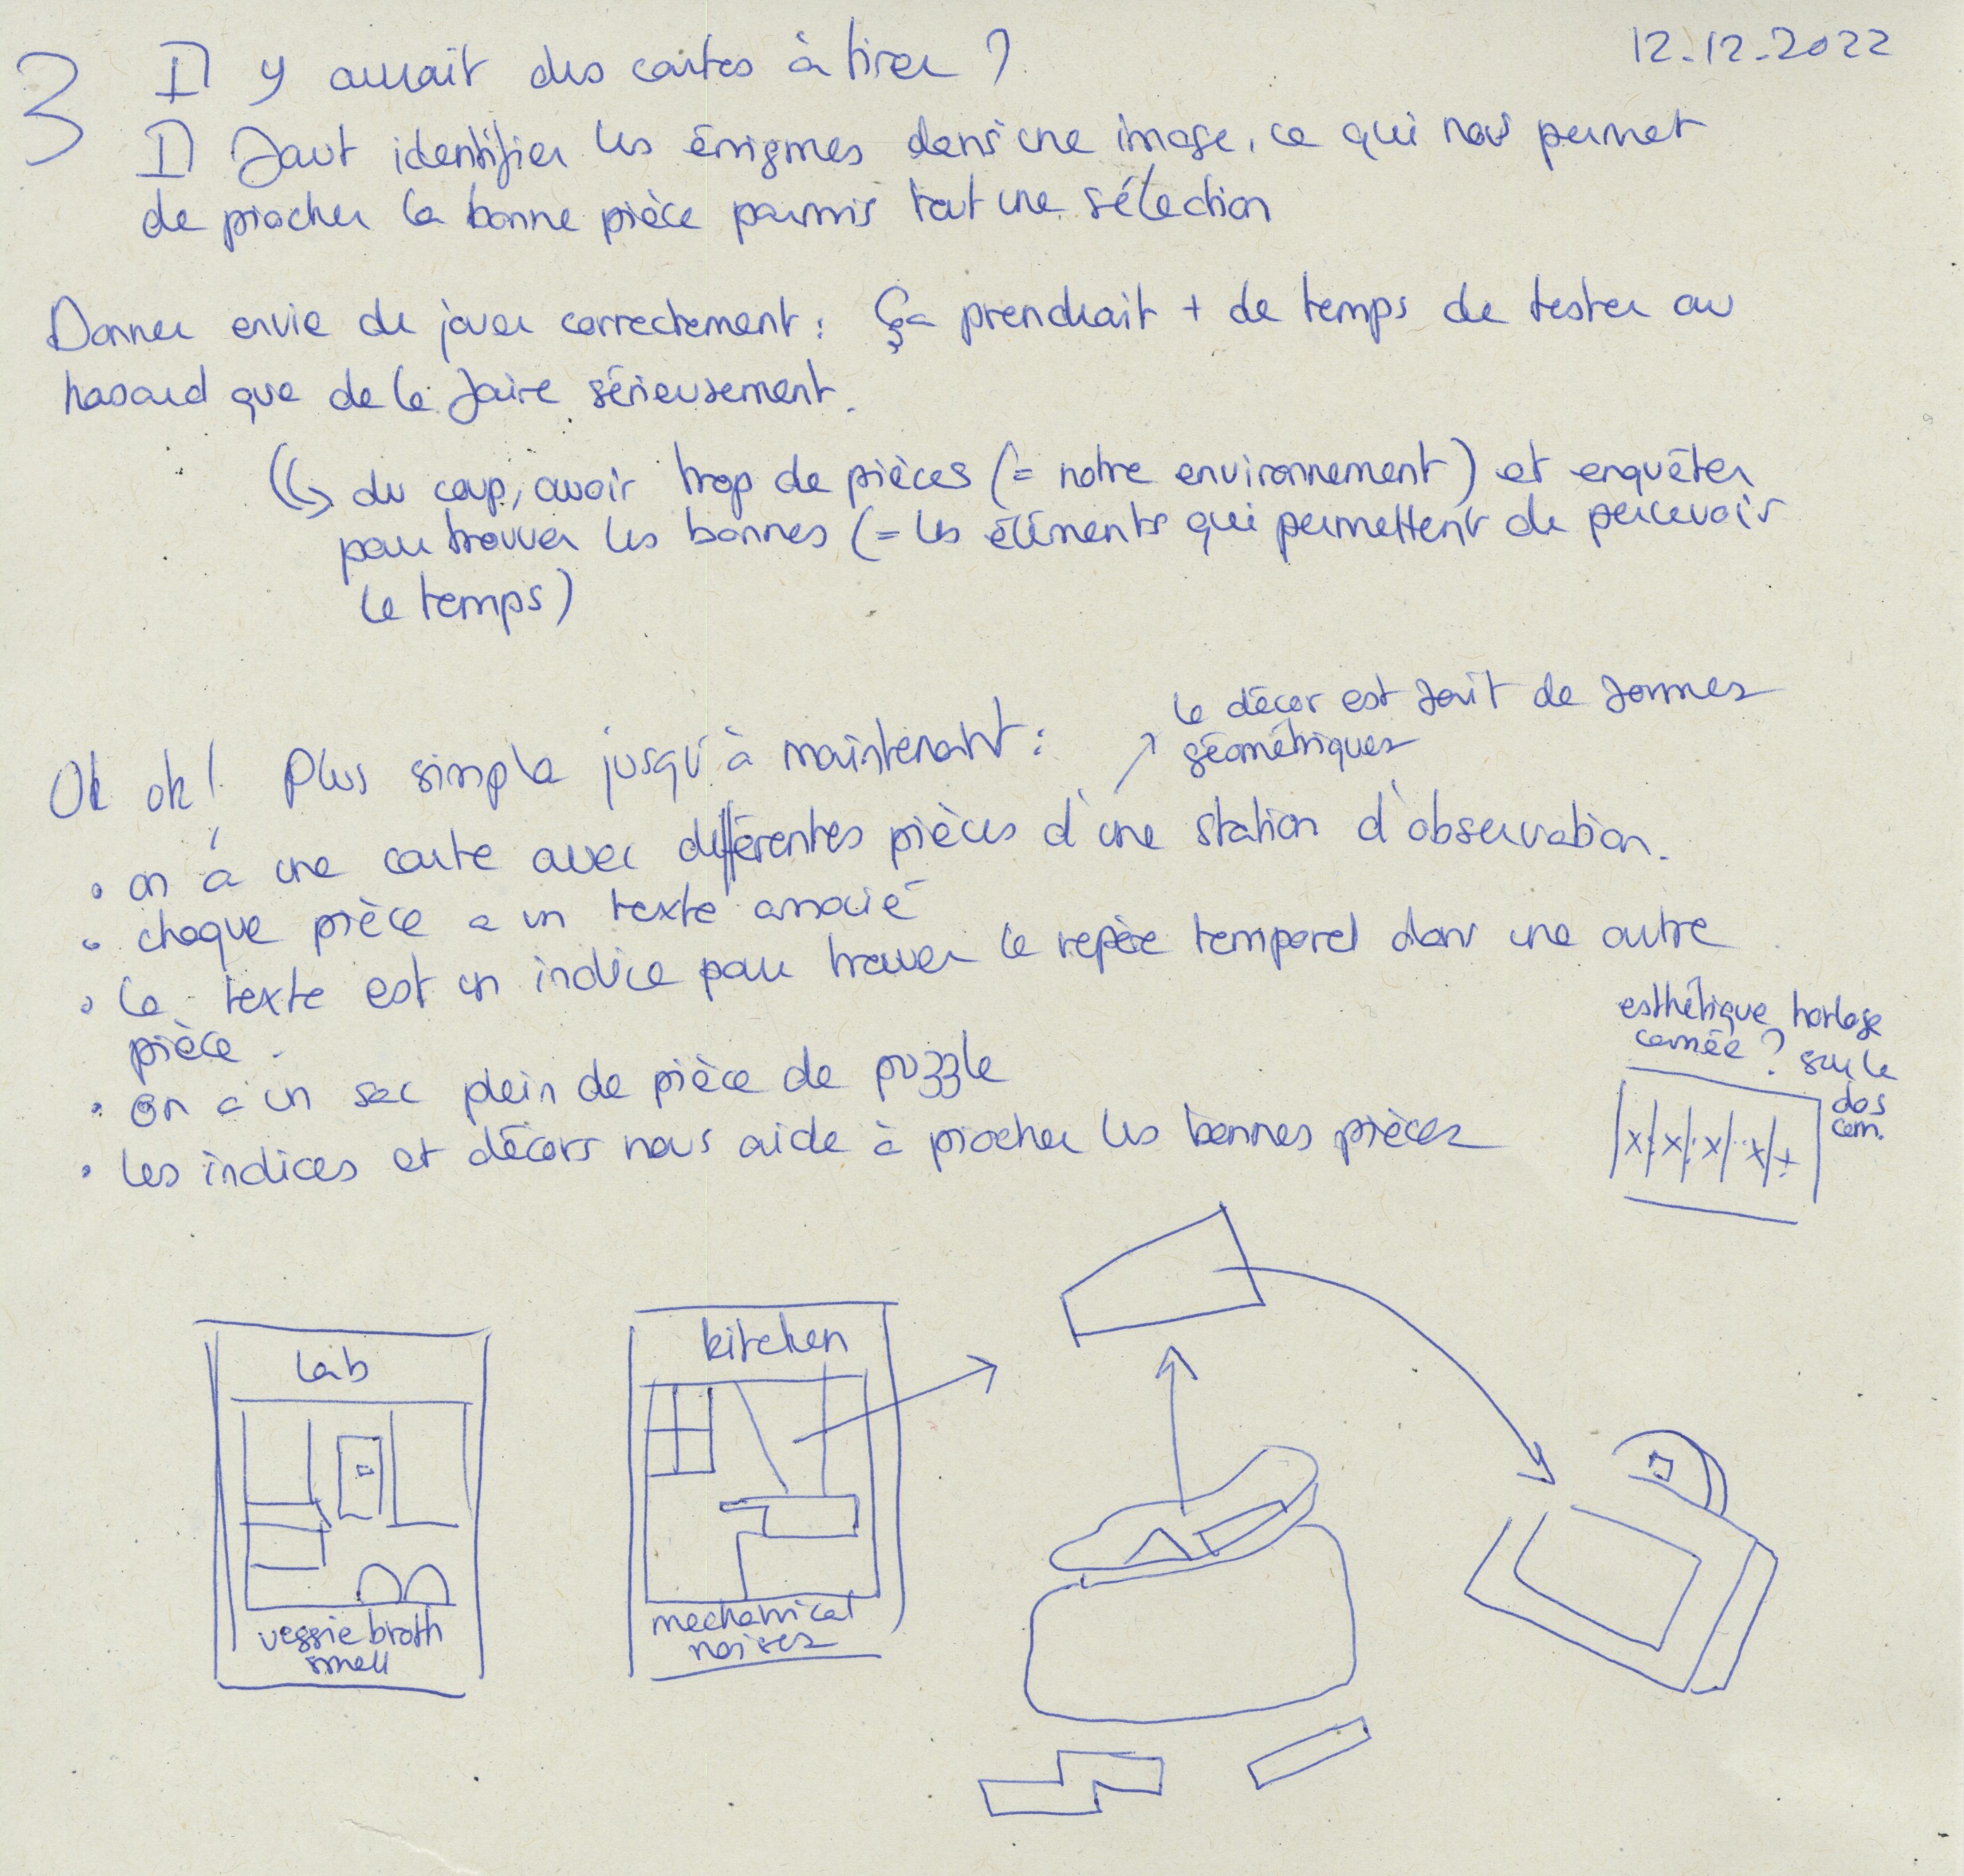 12.12.2022
3
Il y aurait des cartes à tirer ?
Il faut identifier les énigmes dans une image, ce qui nous permet
de piocher la bonne pièce parmis tout une sélection
Donner envie de jouer correctement : Ça prendrait + de temps de tester au
hasard que de le faire sérieusement.
(↳ du coup, avoir trop de pièces (= notre environnement) et enquêter
pour trouver les bonnes (= les éléments qui permettent de percevoir
le temps)
le décor est fait de formes
géométriques
Ok ok ! Plus simple jusqu'à maintenant :
• on a une carte avec différentes pièces d'une station d'observation.
• chaque pièce a un texte associé
• le texte est un indice pour trouver le repère temporel dans une autre
pièce.
• on a un sac plein de pièce de puzzle
• les indices et décors nous aide à piocher les bonnes pièces
esthétique horloge
carrée ? sur le
dos
cam.
lab
veggie broth
smell
kitchen
mechanical
noises